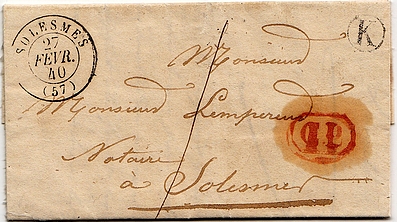 SOLESMES
27
FÉVR.
40
(57)
K
Monsieur
Monsieur Lempereur
ID
Notaire
à Solesmes